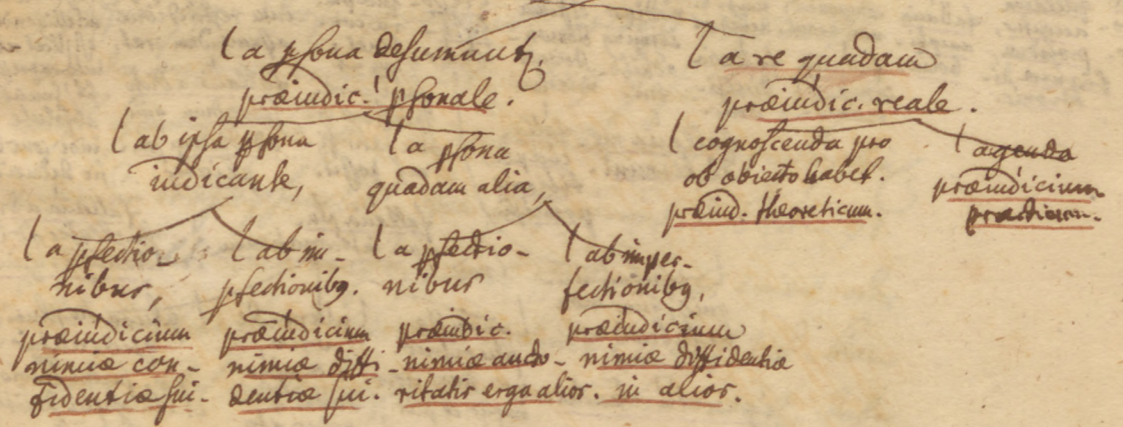 a psona desumunt.
præiudic. psonale.
a re quadam
præiudic. reale.
ab ipsa psona
iudicante,
a psona
quadam alia,
cognoscenda pro
ob obiecto habet.
præiud. theoreticum.
agenda
præiudicium
practicum.
a pfectio-
nibus,
præiudicium
nimiæ con-
fidentiæ sui.
ab im-
pfectionibq.
præiudicium
nimiæ diffi-
dentiæ sui.
a pfectio-
nibus
præiudic.
nimiæ aucto-
ritatis erga alios.
ab imper-
fectionibq,
præiudicium
nimiæ diffidentiæ
in alios.